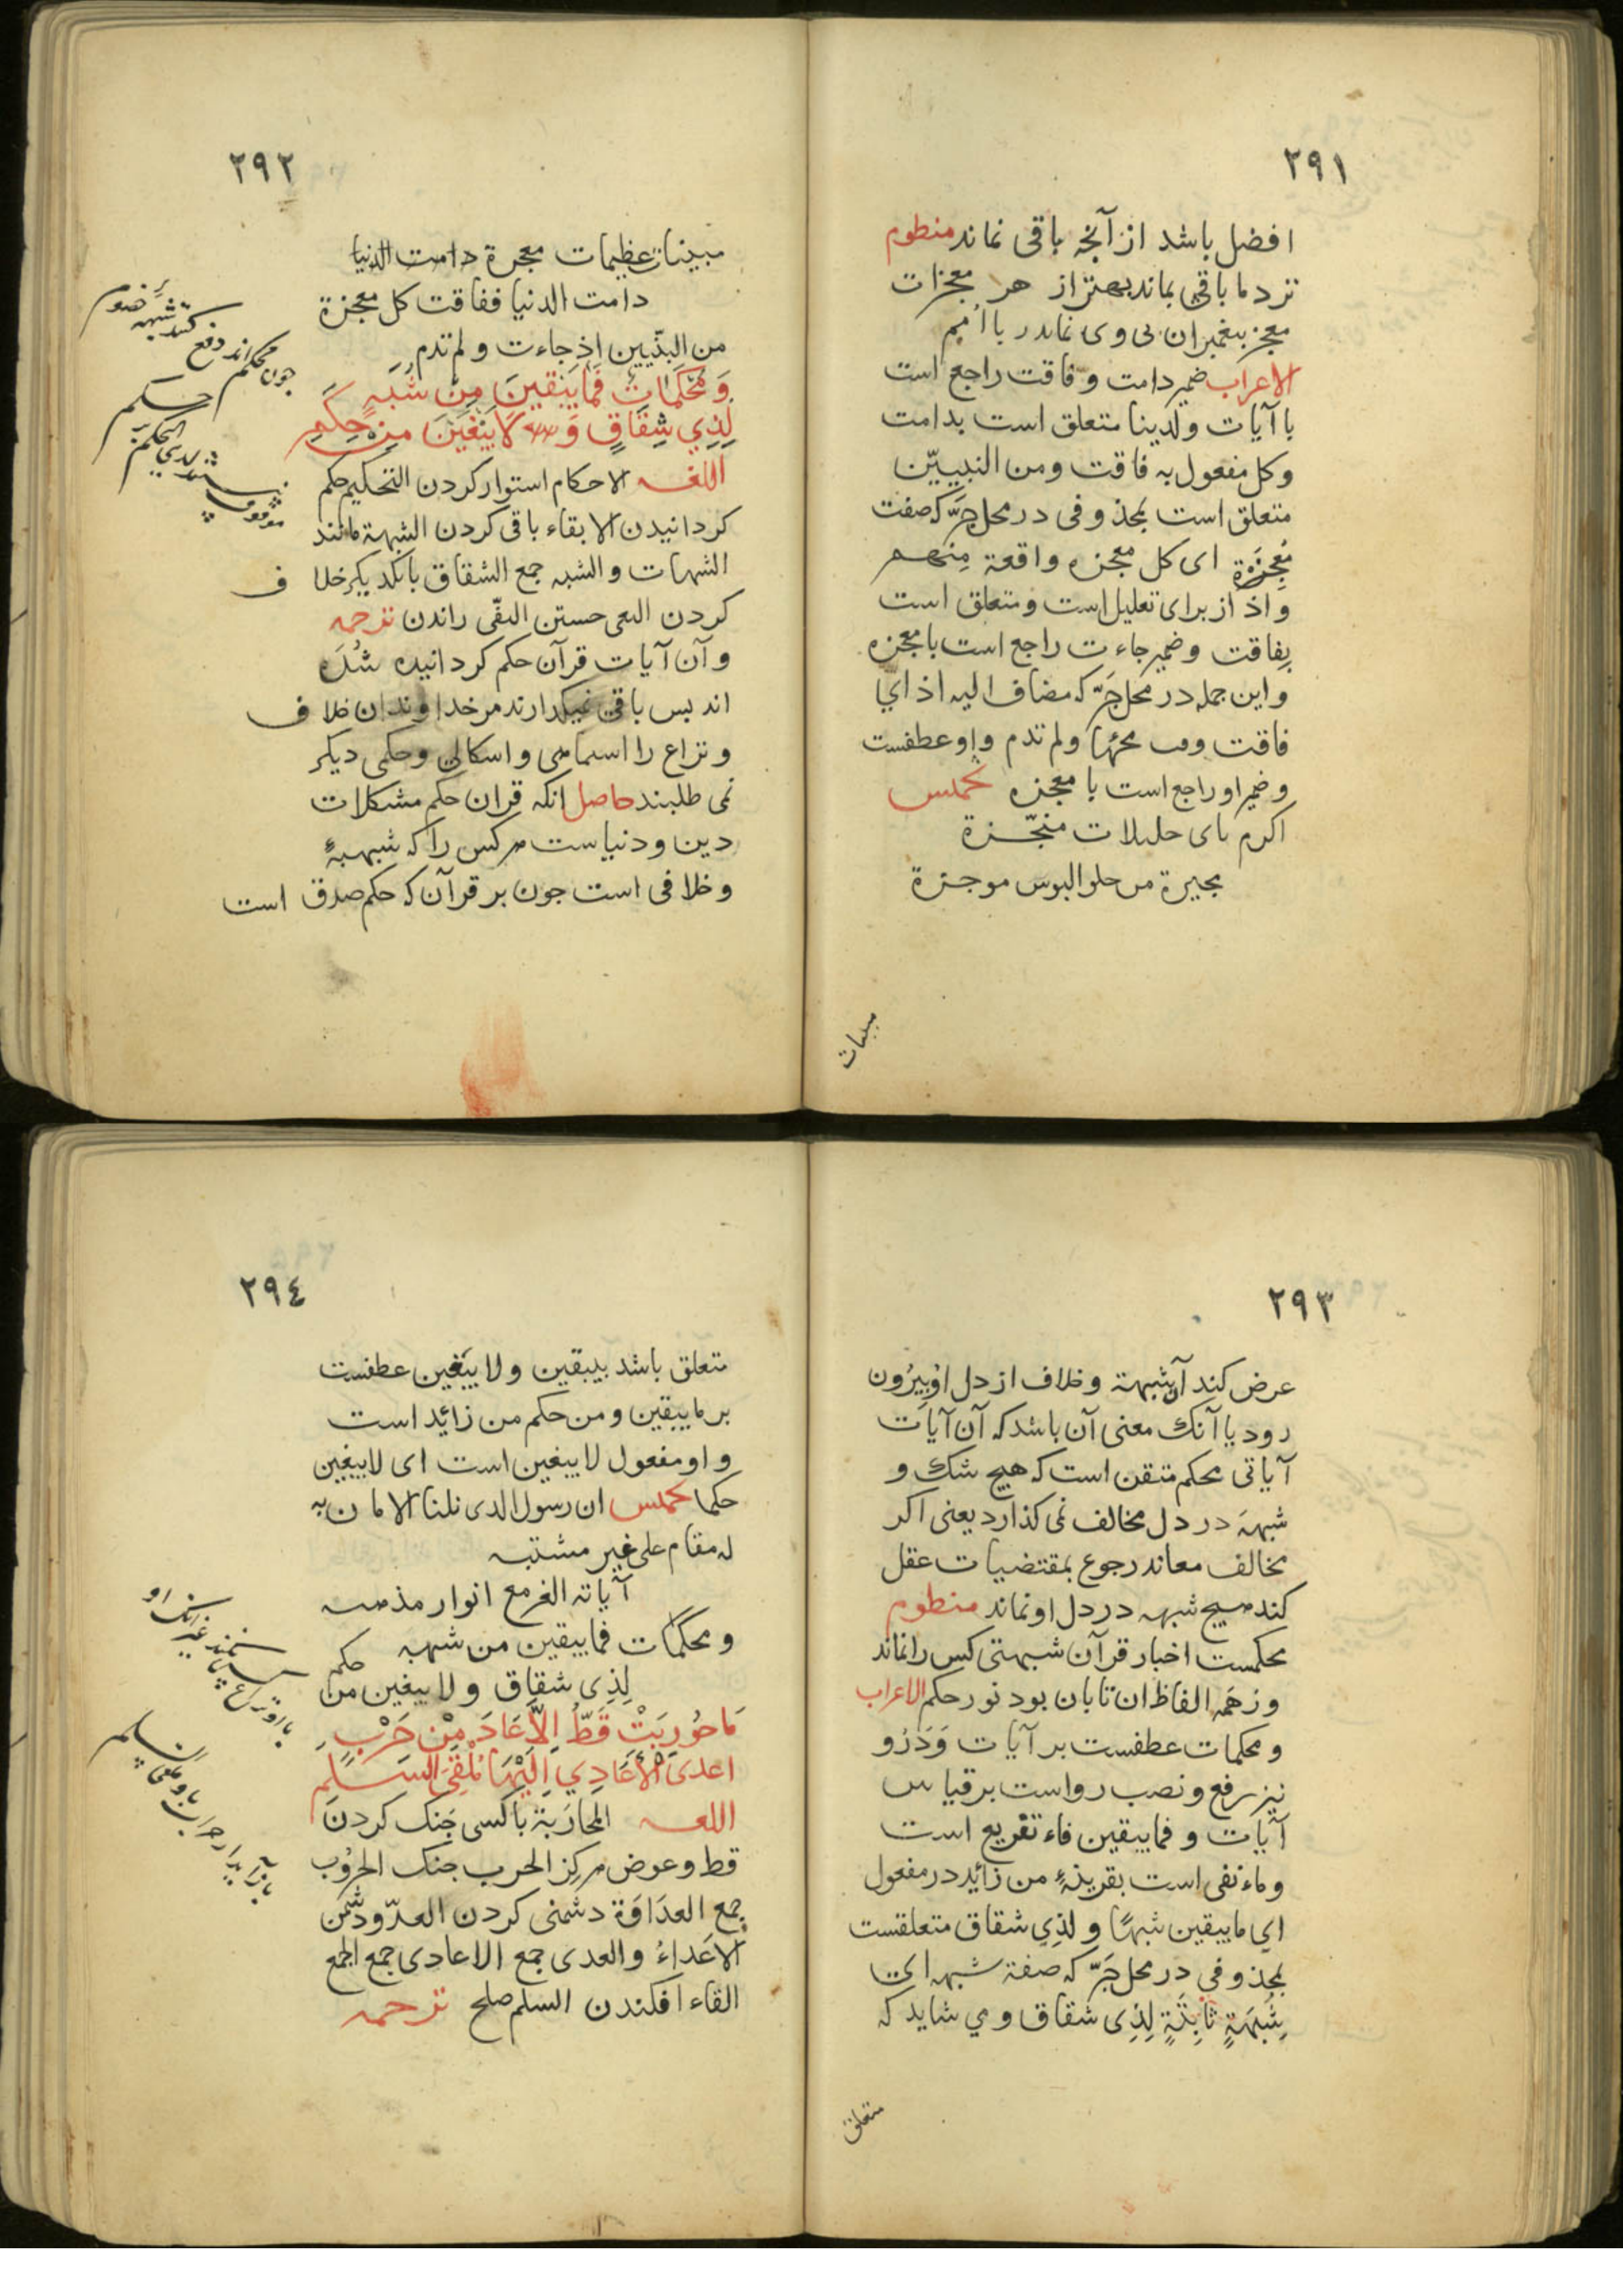 ٢٩١
افضل باشد از آنجه باقی نماند منظوم
نزد ما باقی بماند بهتر از هر معجزات
معجز بیغمبران بی وی نماند ر با امم
الاعراب ضمیر دامت و فاقت راجع است
با آیات و لدینا متعلق است بدامت
و کل مفعول به فاقت و من النبییّن
متعلق است بمحذوفی در محل جَرّ که صفت
مُعجِزَة ای کل معجزه واقعة مِنهم
و اذ از برای تعلیل است و متعلق است
بفاقت و ضمیر جاءت راجع است با معجزه
و این جمله در محل جَرّ که مضاف الیه اذ ای
فاقت وقت مجئها و لم تدم واو عطفست
و ضمیر او راجع است با معجزه تخمیس
اکرم بای جلیلات منجّزة
موجزة
مبینات
٢٩٢
مبینات عظیمات معجزة دامت الدنیا
دامت الدنیا ففاقت کل معجزة
من النبّیین اذ جاءت و لم تدم
وَ مُحَكَّمَاتٌ فَمَا يُبْقِينَ مِنْ شُبَهٍ
لِذِي شِقَاقٍ وَ لَا يَبْغِينَ مِنْ حَكَمِ
اللغه الاحکام استوار کردن التحکیم حکم
کردانیدن الابقاء باقی کردن الشبهة مانند
الشبهات و الشبه جمع الشقاق با یکدیکر خلاف
کردن البغی جستن النفی راندن ترجمه
و آن آیات قرآن حکم کردانیده شُدَه
اند بس باقی نمیکدارند مر خداوندان خلاف
و نزاع را و اشکالی و حکمی دیکر
نمی طلبند حاصل انکه قران حکم مشکلات
دین و دنیاست هر کس را که شبههٔ
و خلافی است جون بر قرآن که حکم صدق است
جون محکم اند دفع کنند شبهه خصوم
حکم
٢٩٣
عرض کند آن شبهة و خلاف از دل او بیرُون
رود یا آنک معنی آن باشد که آن آیات
آیاتی محکم متقن است که هیج شک و
شبهَه در دل مخالف نمی کذارد یعنی اکر
مخالف معاند رجوع بمقتضیات عقل
کند هیج شبهه در دل او نماند منظوم
محکمست اخبار قرآن شبهتی کس را نماند
وز همه الفاظ ان تابان بود نور حکم الاعراب
و محکمات عطفست بر آیات وَ دَرُو
نیز رفع و نصب رواست بر قیاس
آیات و فما یبقین فاء تفریع است
و ماء نفی است بقرینهٔ من زائد در مفعول
ای ما یبقین شبهًا و لِذِی شقاق متعلقست
بمحذوفی در محل جَرّ که صفة شبهه ای
شُبهَةٍ ثابِتَةٍ لِذِی شقاق و می شاید که
متعلق
٢٩٤
متعلق باشد بیبقین و لا یبغین عطفست
بر ما یبقین و من حکم من زائد است
و او مفعول لا یبغین است ای لا یبغین
حکما تخمیس ان رسول الذی نلنا الامان به
له مقام علی غیر مشتبه
آیاته الغر مع انوار مذهبه
و محکمات فما یبقین من شبهه
لِذِی شقاق و لا یبغین من حکم
مَا حُورِبَتْ قَطُّ اِلَّا عَادَ مِنْ حَرَبٍ
اعدَی الْأَعَادِي اِلَيْهَا مُلْقِيَ السَّلَمِ
اللغه المحارَبَة با کسی جَنک کردن
قط و عوض هرکز الحرب جنک الحرُوب
جمع العدَاوَة دشمنی کردن العدّو دشمن
الاعَداءُ و العدی جمع الاعادی جمع الجمع
القاء افکندن السلم صلح ترجمه